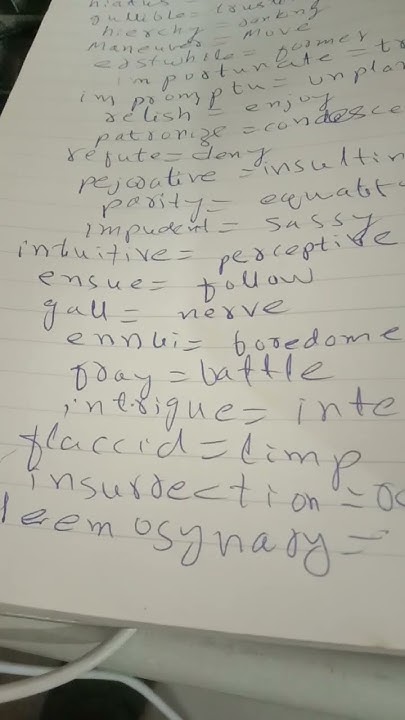 gullible = trus
hierchy = ranking
Maneuver = Move
erstwhile = former
importunate = tr
impromptu = unplan
relish = enjoy
patronize = condesce
refute = deny
pejorative = insultin
parity = equalit
impudent = sassy
intuitive = perceptive
ensue = follow
gall = nerve
ennui = boredome
fray = battle
intrigue = inte
flaccid = limp
insurrection =
leemosynary =